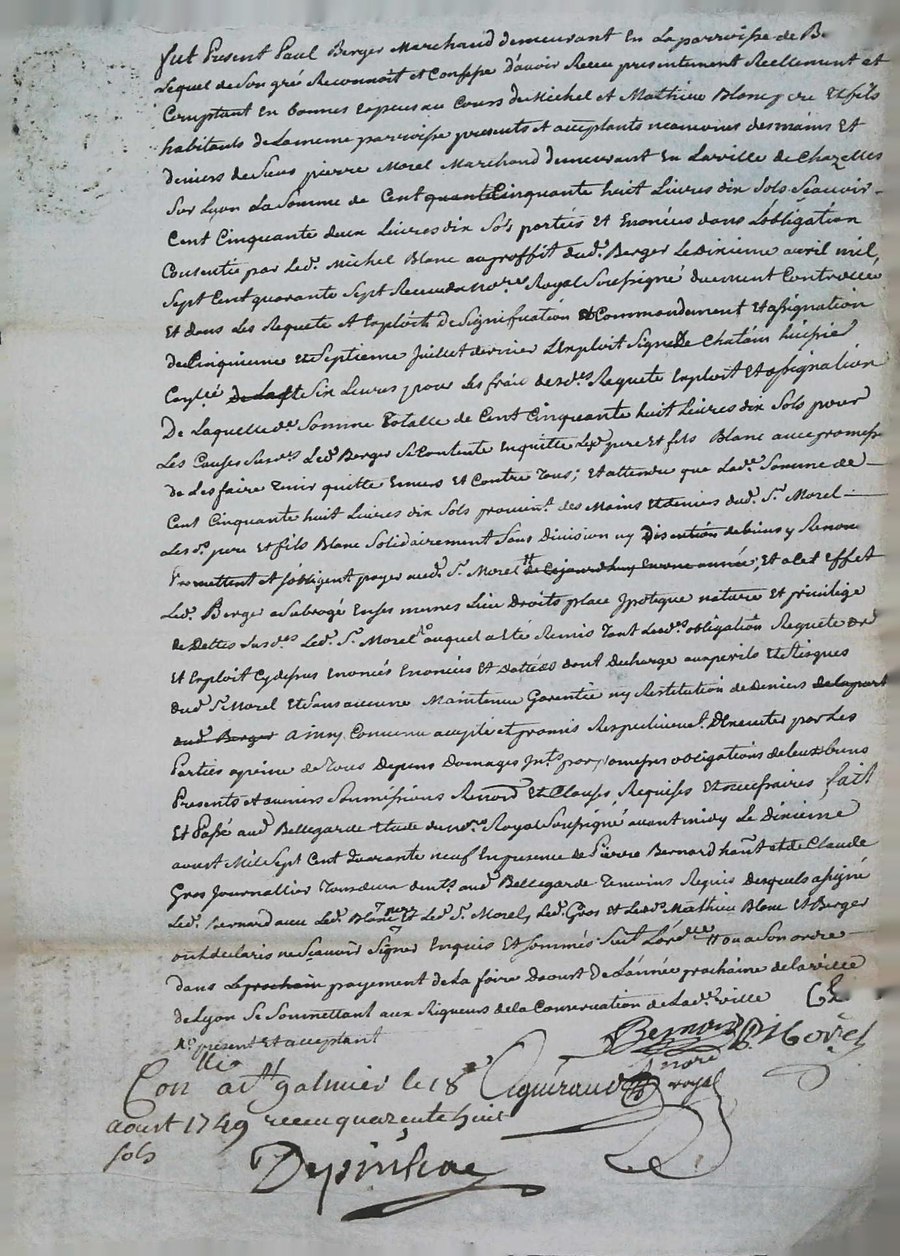 fut Present Paul Berger Marchand demeurant En La parroisse de B
Lequel de Son gré Reconnoit et Confesse d'avoir Receu presentement Reellement et
Comptant En bonnes Especes au Cours de Michel et Mathieu Blanc pere Et fils
habitants de La meme parroisse presents et acceptants neamoins des mains Et
deniers de Sieur pierre Morel Marchand demeurant En La ville de Chazelles
Sur Lyon La Somme de Cent quante Cinquante huit Livres dix Sols Scavoir
Cent Cinquante deux Livres dix Sols portées Et Enoncées dans L'obligation
Consentie par Led. Michel Blanc au proffit dud. Berger Le dixieme avril mil
Sept Cent quarante Sept Receue du nore Royal Soussigné duement Controllée
Et dans Les Requete et Exploits de Signification et Commandement Et assignation
de Cinquieme et Septieme Juillet dernier L'Exploit Signé De Chatain huissier
De Laft Six Livres pour Les frais desd.es Requete Exploit Et assignation
De Laquelle de Somme totalle de Cent Cinquante huit Livres dix Sols pour
Les Causes Susd.es Led. Berger Se Contente En quitte Lesd. pere Et fils Blanc avec promesse
de Les faire tenir quitte Envers Et Contre tous; Et attendu que Lad.e Somme de
Cent Cinquante huit Livres dix Sols provient des Mains Et deniers dud. Sr. Morel
Lesd. pere Et fils Blanc Solidairement Sans division ny Discution de biens y Renon
Promettent et s'obligent payer aud. Sr. Morel # de Cejourdhuy En une année; Et a Cet Effet
Led. Berger a Subrogé En Ses memes Lieu Droits place Ipoteque nature Et privilege
de Dettes Susd.es Led. Sr. Morel auquel a Eté Remis tant Lesd.es obligation Requete
Et Exploit Cy dessus Enoncés Enoncées Et datées dont decharge aux perils Et Risques
dud. Sr. Morel Et Sans aucune Maintenue Garentie ny Restitution de deniers de la part
dud. Berger ainsy Convenu accepté et promis Respectivemt. D'Executer par Les
Parties a peine de tous Depens Domages Ints. par promesses obligations de Leurs biens
Presents Et avenirs Soumissions Renond. Et Clauses Requises Et necessaires fait
Et Passé aud. Bellegarde Etude du nore Royal Soussigné avant midy Le dixieme
aoust Mil Sept Cent Quarante neuf En presence de Pierre Bernard hant. et de Claude
Gros Journallier tous deux demts. aud. Bellegarde temoins Requis Desquels a Signé
Led. bernard avec Led. Blanc pere Et Led. Sr. Morel, Led. Gros et Lesds. Mathieu Blanc Et Berger
ont declaris ne Scavoir Signer Enquis Et Sommés Suit L'ord.ce # ou a Son ordre
dans Le prochain payement de La foire D'aoust De L'année prochaine de La ville
de Lyon Se Soumettant aux Rigueurs de La Conservation de Lad.e ville
present Et acceptant
Bernard P Morel
Conlle a St galmier le 18e
nore royal
aoust 1749 receu quarente huit
sols